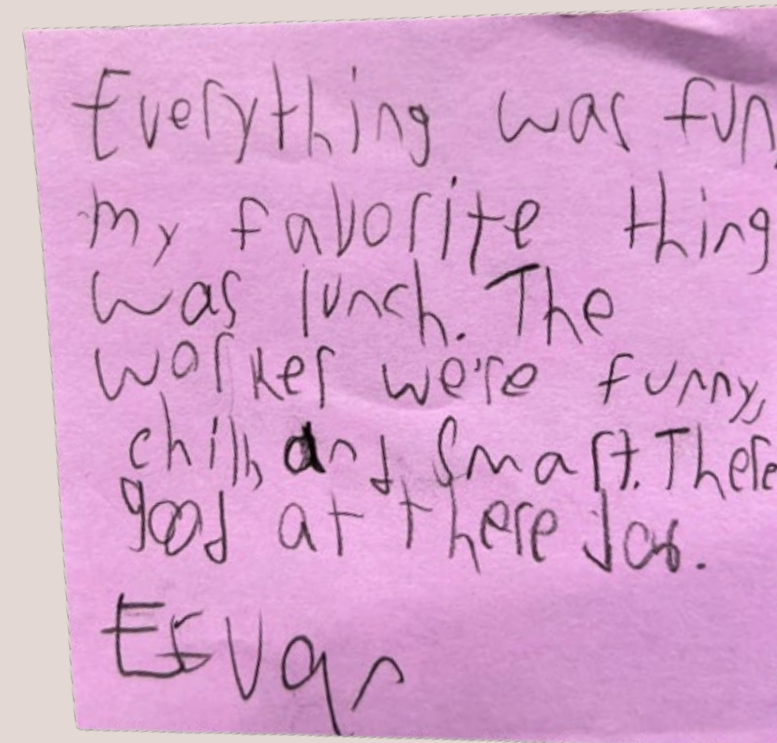 Everything was fun,
my favorite thing
was lunch. The
worker we're funny,
chill, and smart. There
good at there Job.